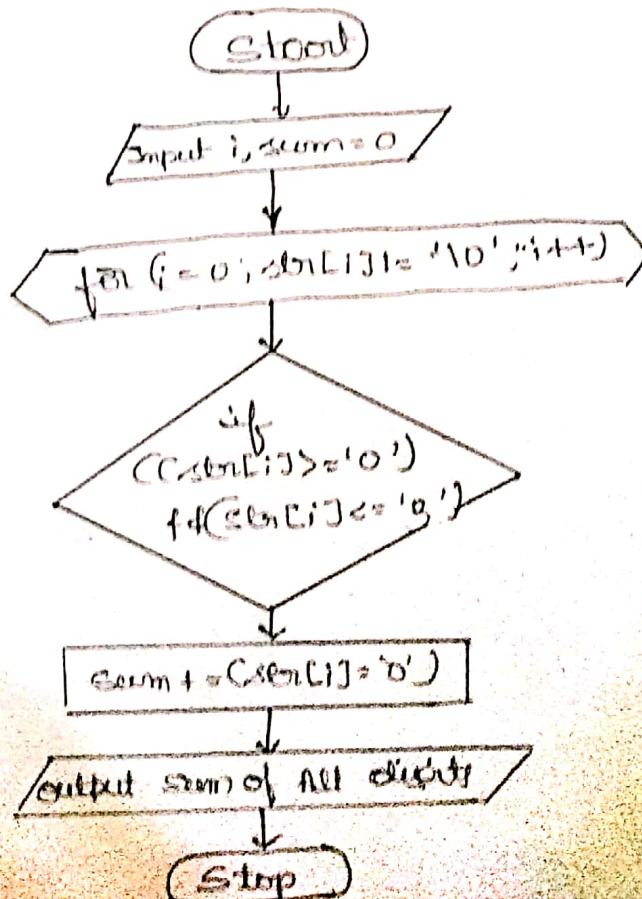 Start
Input i, sum = 0
for (i = 0; str[i] != '\0'; i++)
if
((str[i] >= '0')
&& (str[i] <= '9')
sum + = (str[i] = '0')
output sum of All digits
Stop